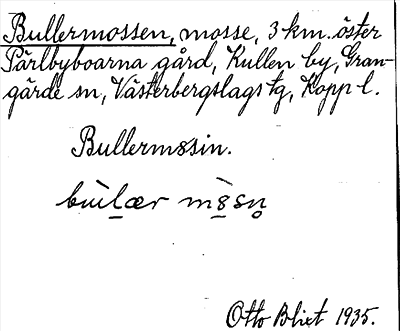 Bullermossen, mosse, 3 km. öster
Pärlbyboarna gård, Kullen by, Gran-
gärde sn, Västerbergslags tg, Kopp l.
Bullermosin.
Otto Blixt 1935.